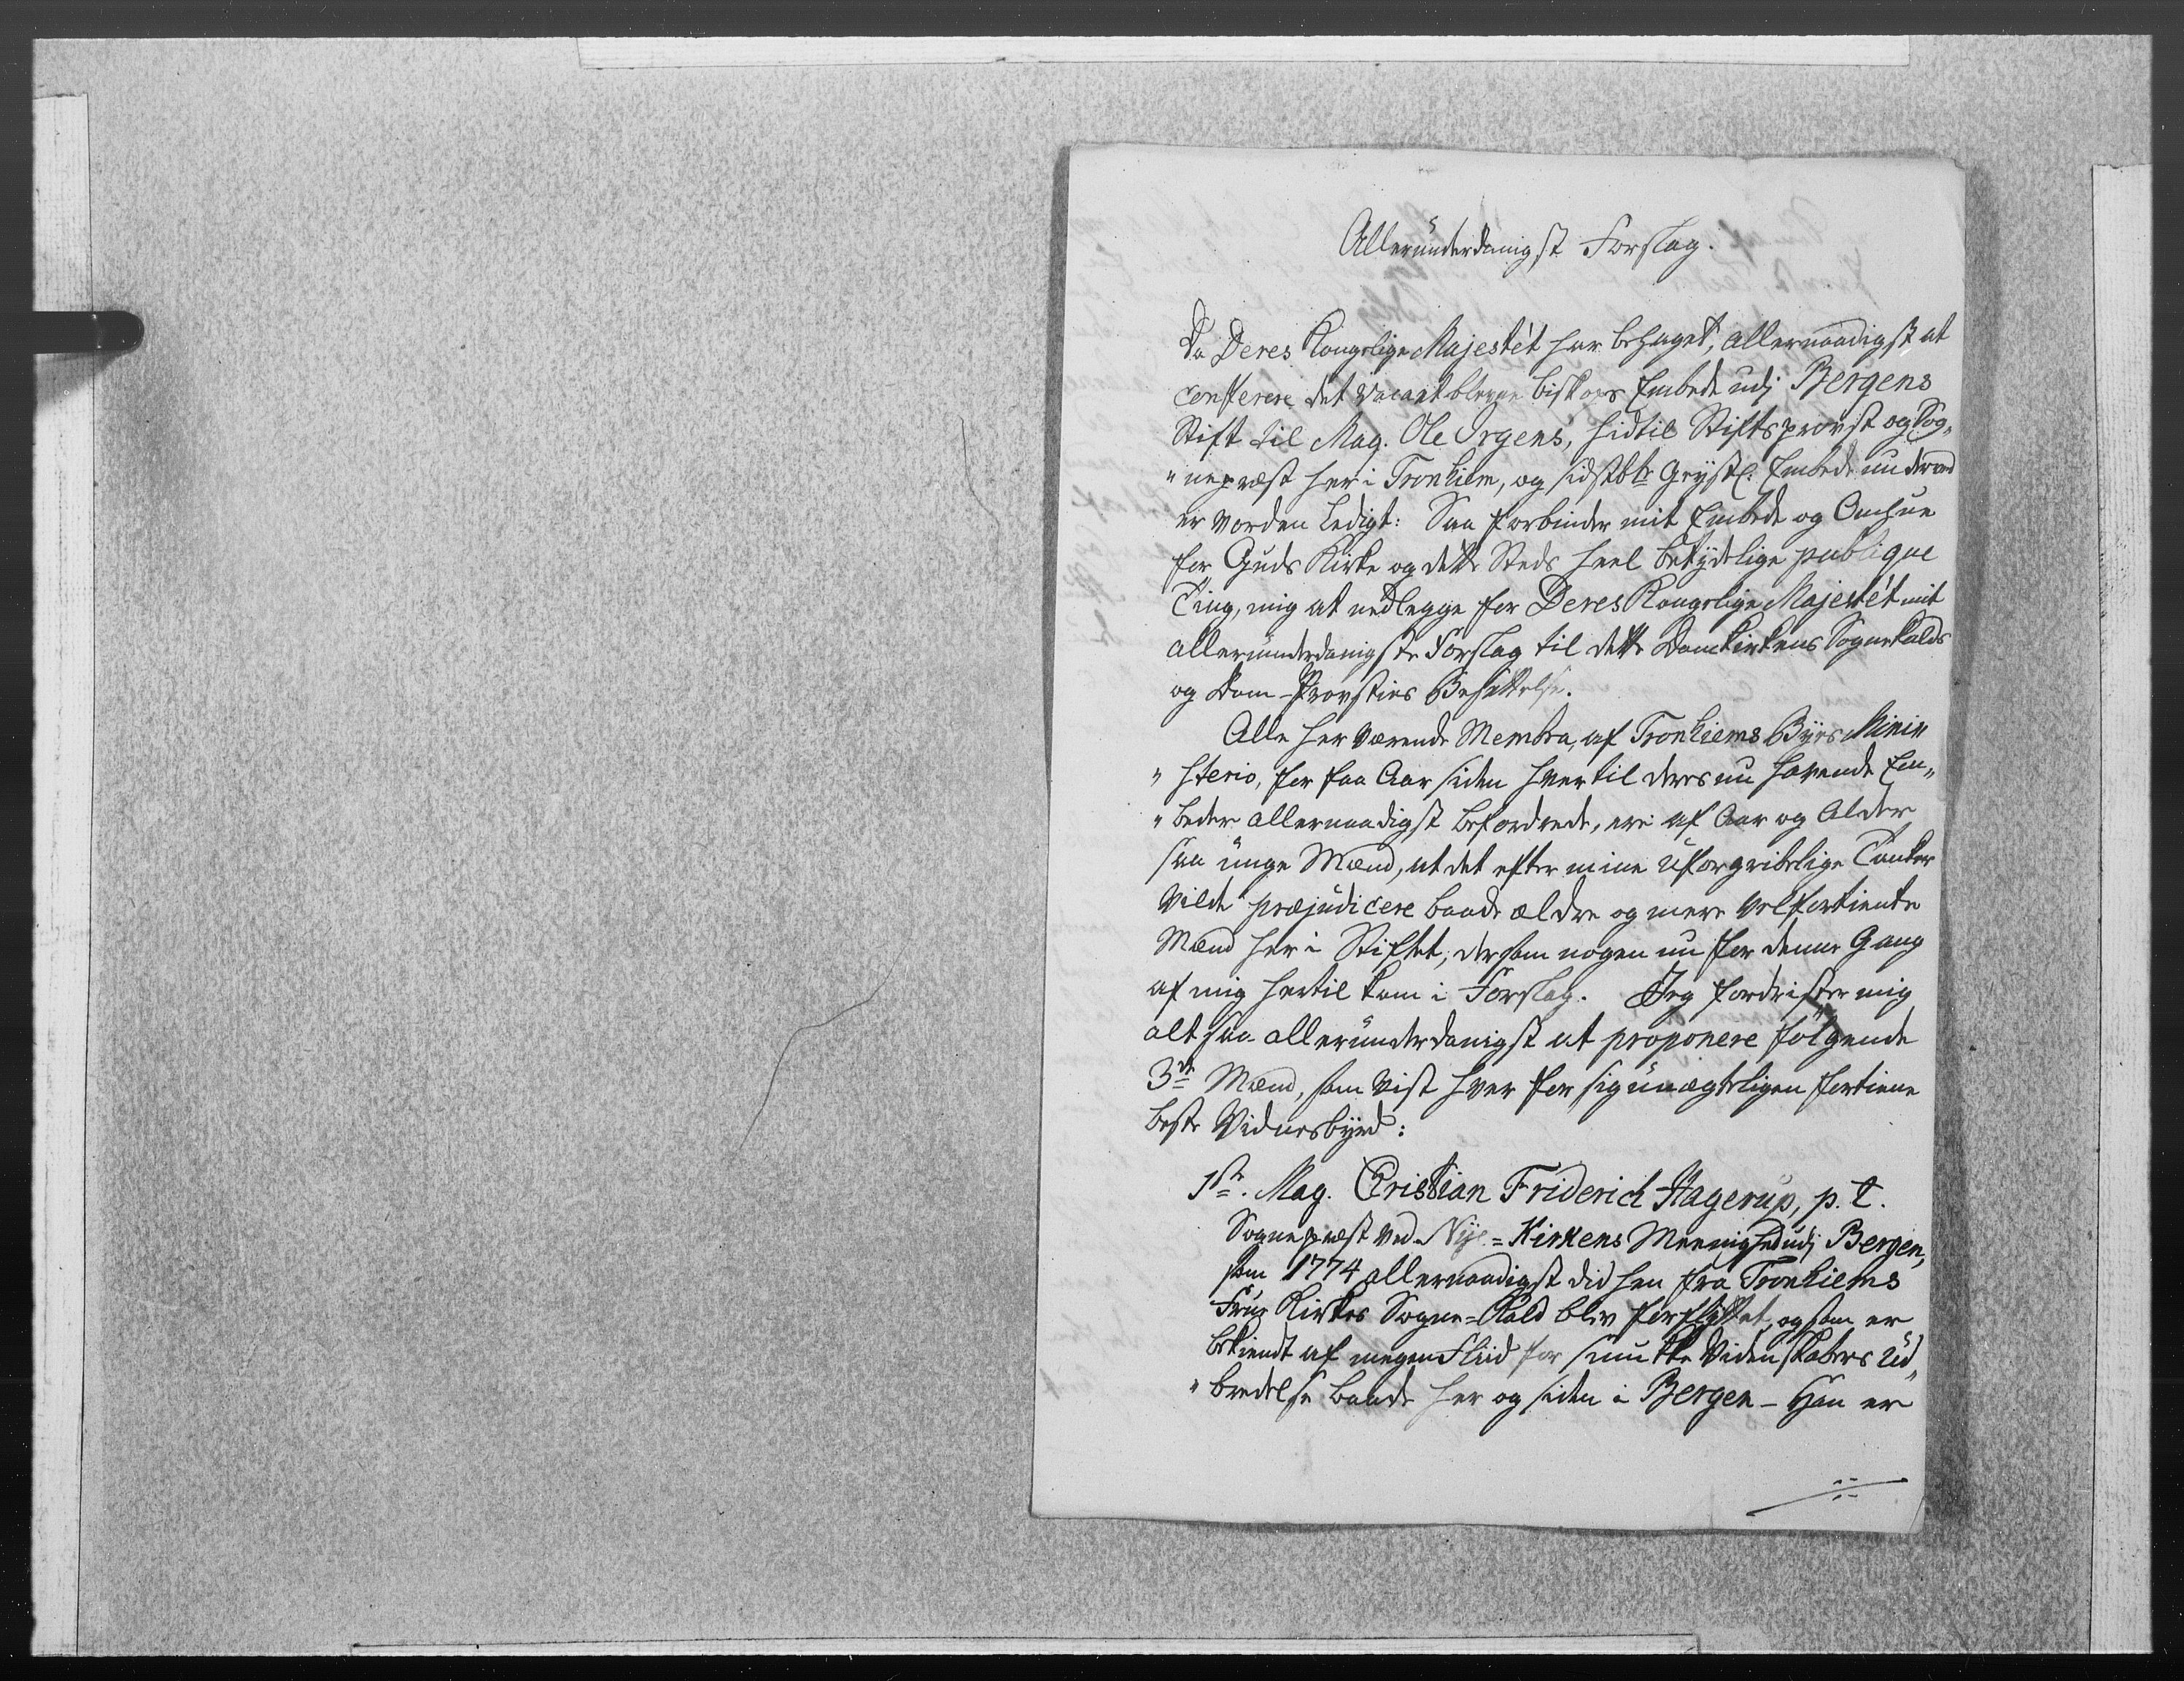 Allerünterdanigst Forslag.
Da Deres Kongelige Majestét har behaget, allernaadigst at
conferere det vacant blevne biskops Embede udj Bergens
Stift til Mag. Ole Irgens, hidtil Stiftsprovst og Sog„
„nepræst her i Tronhiem, og sidstbte Geystl. Embede nu derved
er vorden ledigt: Saa forbinder mit Embede og Omhue
for Guds Kirke og dette Steds heel betydelige publique
Ting, mig at nedlegge for Deres Kongelige Majestét mit
allerünterdanigste Forslag til dette Domkirkens Sognekalds
og Dom-Provsties Besættelse.
Alle her værende Membra, af Tronhiems Byes Minin
„sterio, for faa Aar siden hver til deres nu havende Em„
„beder allernaadigst befordrede, ere af Aar og Alder
saa unge Mænd, at det efter mine uforgribelige Tanker
vilde præjudicere baade ældre og mere velfortiente
Mænd her i Stiftet, dersom nogen nu for denne Gang
af mig hertil kom i Forslag. Jeg fordrister mig
altsaa allerünterdanigst at proponere følgende
3de Mænd, som vist hver for sig unægteligen fortiene
beste Vidnesbyrd:
1ste. Mag. Cristian Friderich Hagerup, p. t.
Sognepræst ved Nye=Kirkens Meenighed udj Bergen,
som 1774 allernaadigst did hen fra Tronhiems
Frue Kirkes Sogne=Kald blev forflyttet, og som er
bekiendt af megen Fliid for smukke Videnskabers Ud„
„bredelse baade her og siden i Bergen – Han er